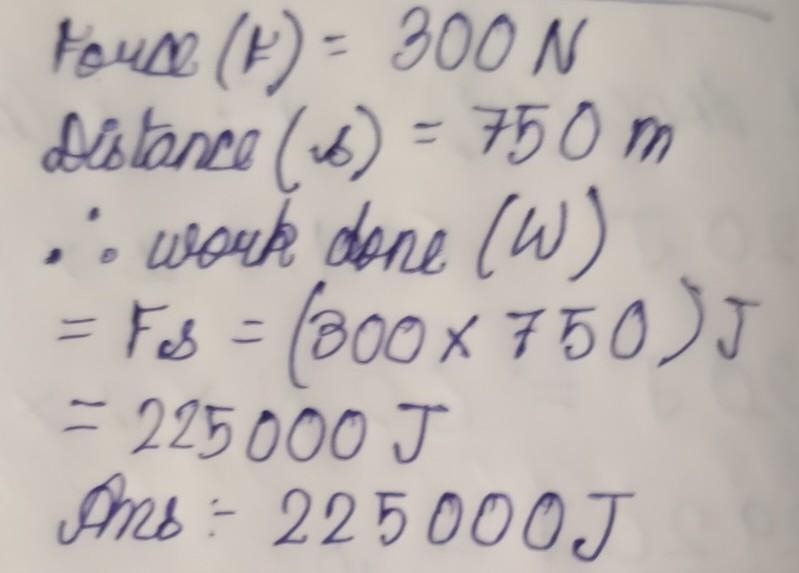 Force (F) = 300 N
Distance (s) = 750 m
∴ work done (W)
= Fs = (300 x 750) J
= 225000 J
Ans :- 225000J